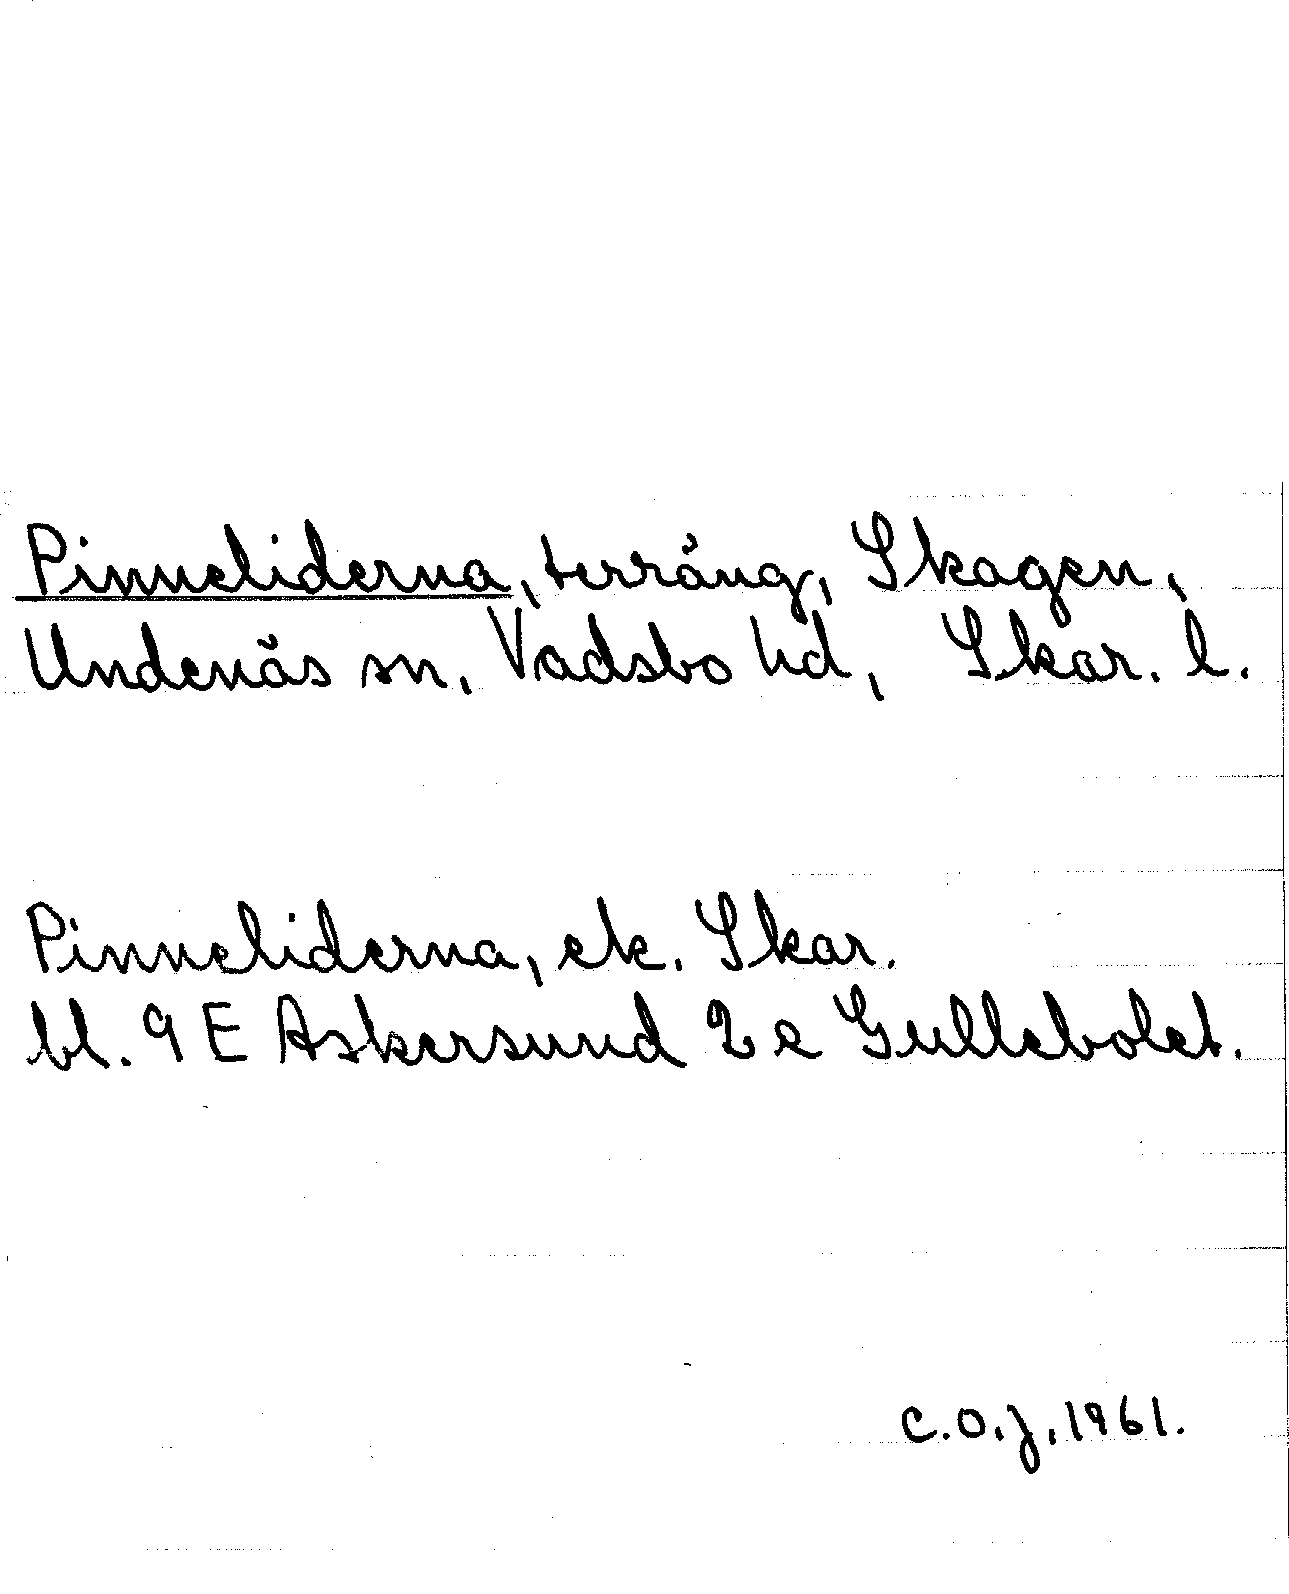 Pinneliderna, terräng, Skagen,
Undenäs sn, Vadsbo hd, Skar. l.
Pinneliderna, ek. Skar.
bl. 9 E Askersund 2 e Gullebolet.
C.O.J. 1961.